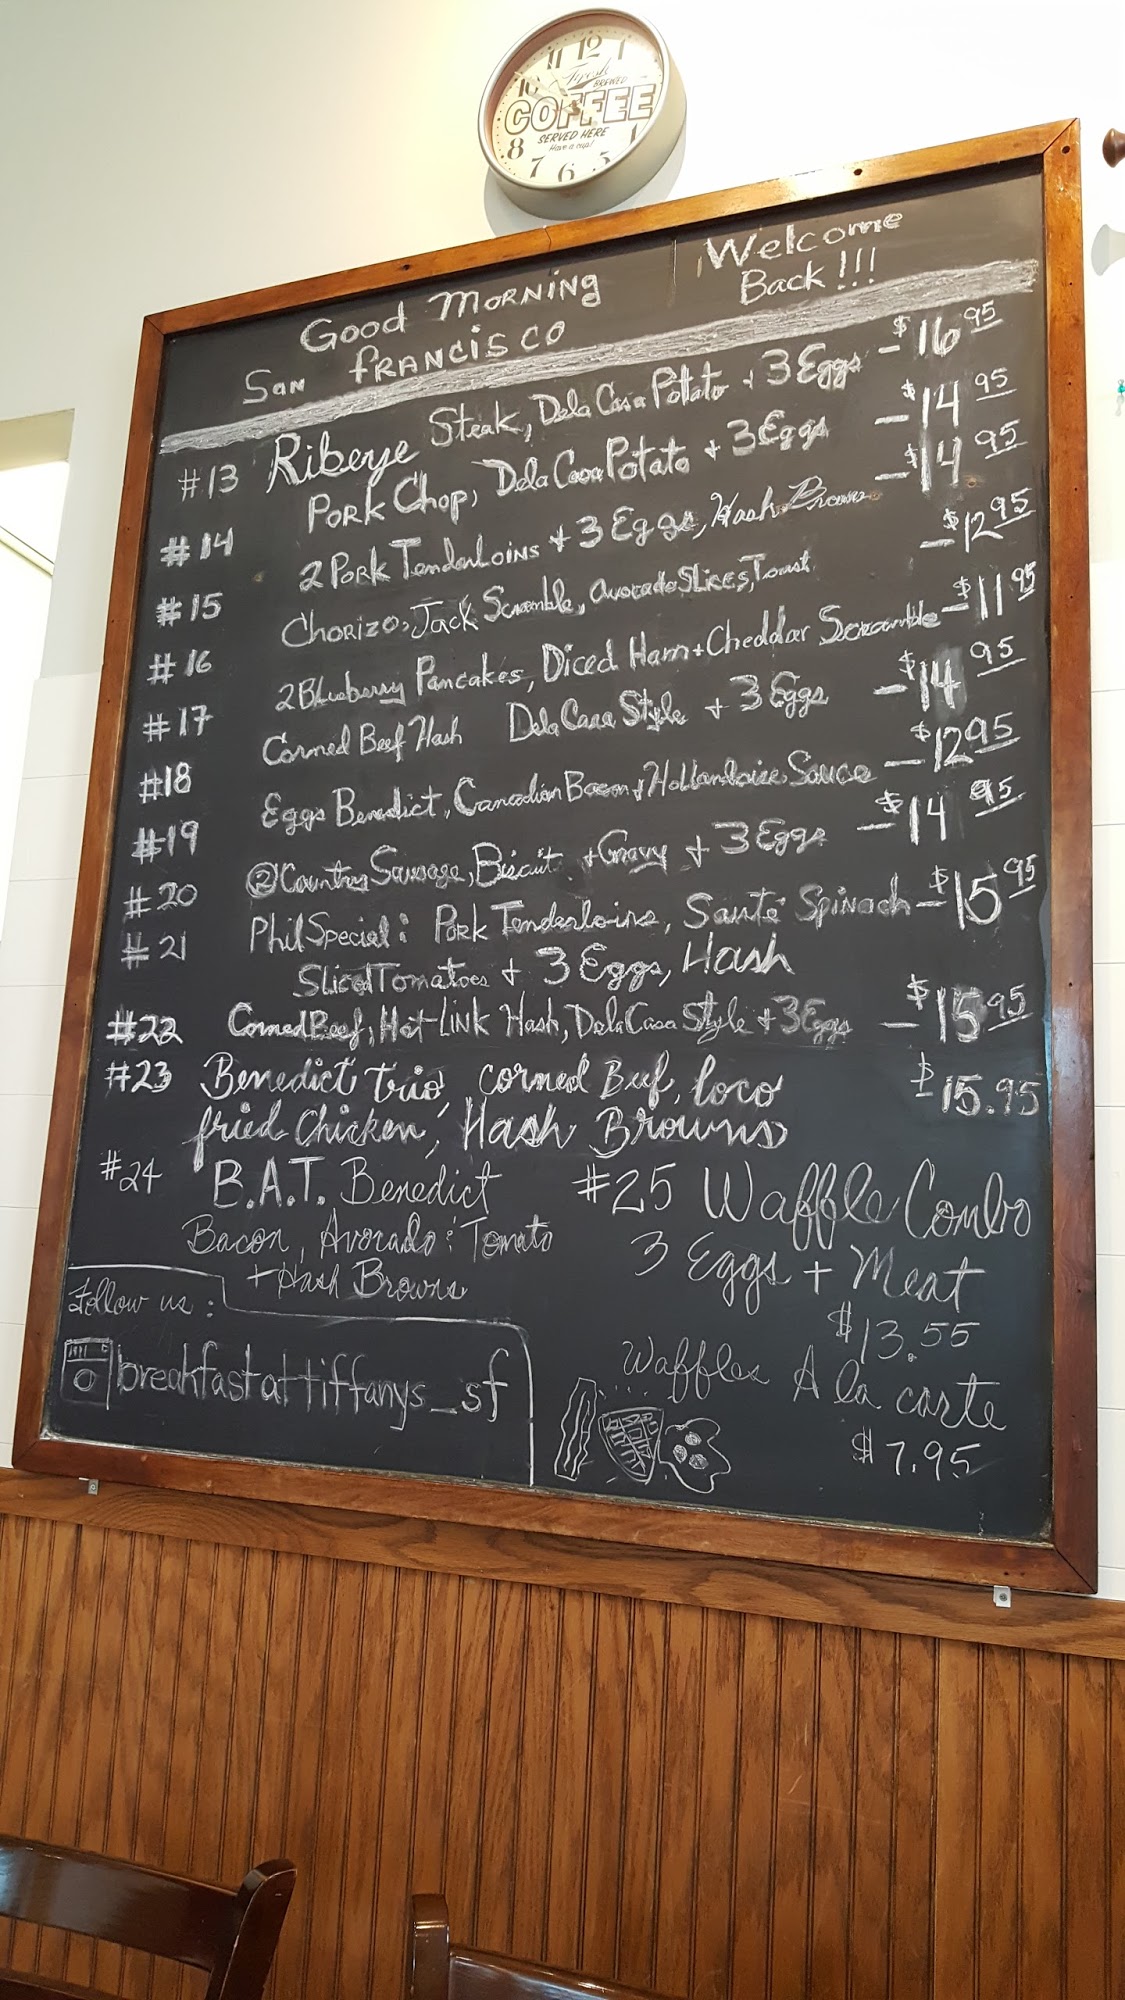 11 12 1
10
Fresh
BREWED
COFFEE
SERVED HERE
Have a cup!
8 7 6 5 4
Good MORNING
SAN FRANCISCO
Welcome
Back!!!
#13 Ribeye Steak, Dela Casa Potato + 3 Eggs - $16 95
#14 PORK Chop, Dela Casa Potato + 3 Eggs - $14 95
#15 2 PORK Tenderloins + 3 Eggs, Hash Browns - $14 95
#16 Chorizo, Jack Scramble, Avocado Slices, Toast - $12 95
#17 2 Blueberry Pancakes, Diced Ham + Cheddar Scramble - $11 95
#18 Corned Beef Hash Dela Casa Style + 3 Eggs - $14 95
#19 Eggs Benedict, Canadian Bacon + Hollandaise Sauce - $12 95
#20 ② Country Sausage, Biscuit + Gravy + 3 Eggs - $14 95
#21 Phil Special: Pork Tenderloins, Sauté Spinach - $15 95
Sliced Tomatoes + 3 Eggs, Hash
#22 Corned Beef, Hot-LINK Hash, Dela Casa Style + 3 Eggs - $15 95
#23 Benedict Trio, corned Beef, loco $15.95
fried Chicken, Hash Browns
#24 B.A.T. Benedict
Bacon, Avocado : Tomato
+ Hash Browns
#25 Waffle Combo
3 Eggs + Meat
$13.55
Waffles A la carte
$7.95
Follow us:
breakfastattiffanys_sf